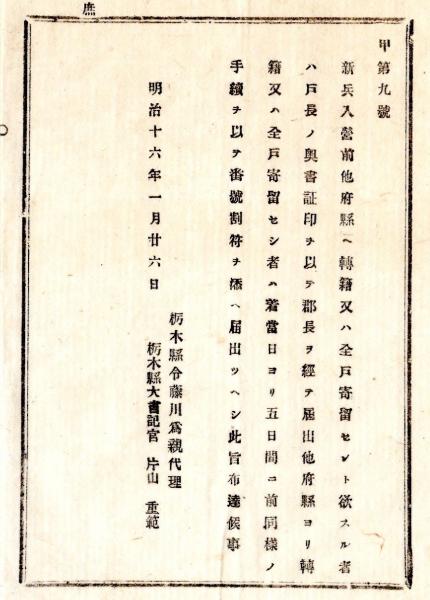 庶
甲第九號
新兵入營前他府縣ヘ轉籍又ハ全戸寄留セント欲スル者
ハ戸長ノ奥書証印ヲ以テ郡長ヲ經テ届出他府縣ヨリ轉
籍又ハ全戸寄留セシ者ハ着當日ヨリ五日間ニ前同樣ノ
手續ヲ以テ番號割符ヲ添ヘ届出ツヘシ此旨布達候事
明治十六年一月廿六日
栃木縣令藤川爲親代理
栃木縣大書記官 片山 重範